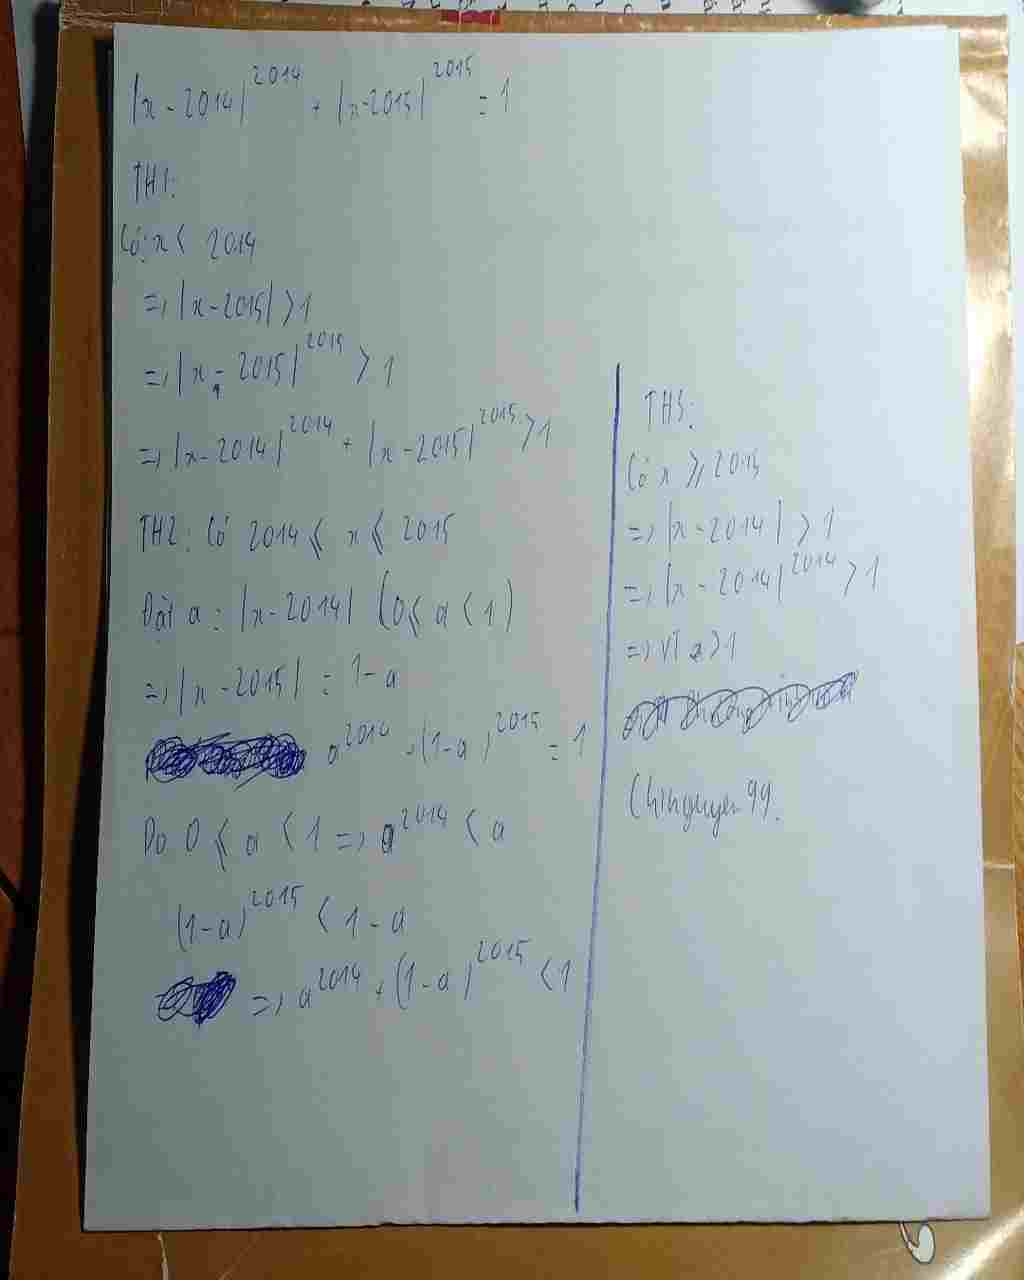 |x - 2014|^2014 + |x-2015|^2015 = 1
TH1:
Có: x < 2014
=> |x-2015| > 1
=> |x - 2015|^2015 > 1
=> |x-2014|^2014 + |x-2015|^2015 > 1
TH2: Có 2014 ⩽ x ⩽ 2015
Đặt a = |x-2014| (0 ⩽ a < 1)
=> |x-2015| = 1-a
a^2014 + (1-a)^2015 = 1
Do 0 ⩽ a < 1 => a^2014 < a
(1-a)^2015 < 1-a
=> a^2014 + (1-a)^2015 < 1
TH3:
Có x ⩾ 2015
=> |x-2014| > 1
=> |x-2014|^2014 > 1
=> VT > 1